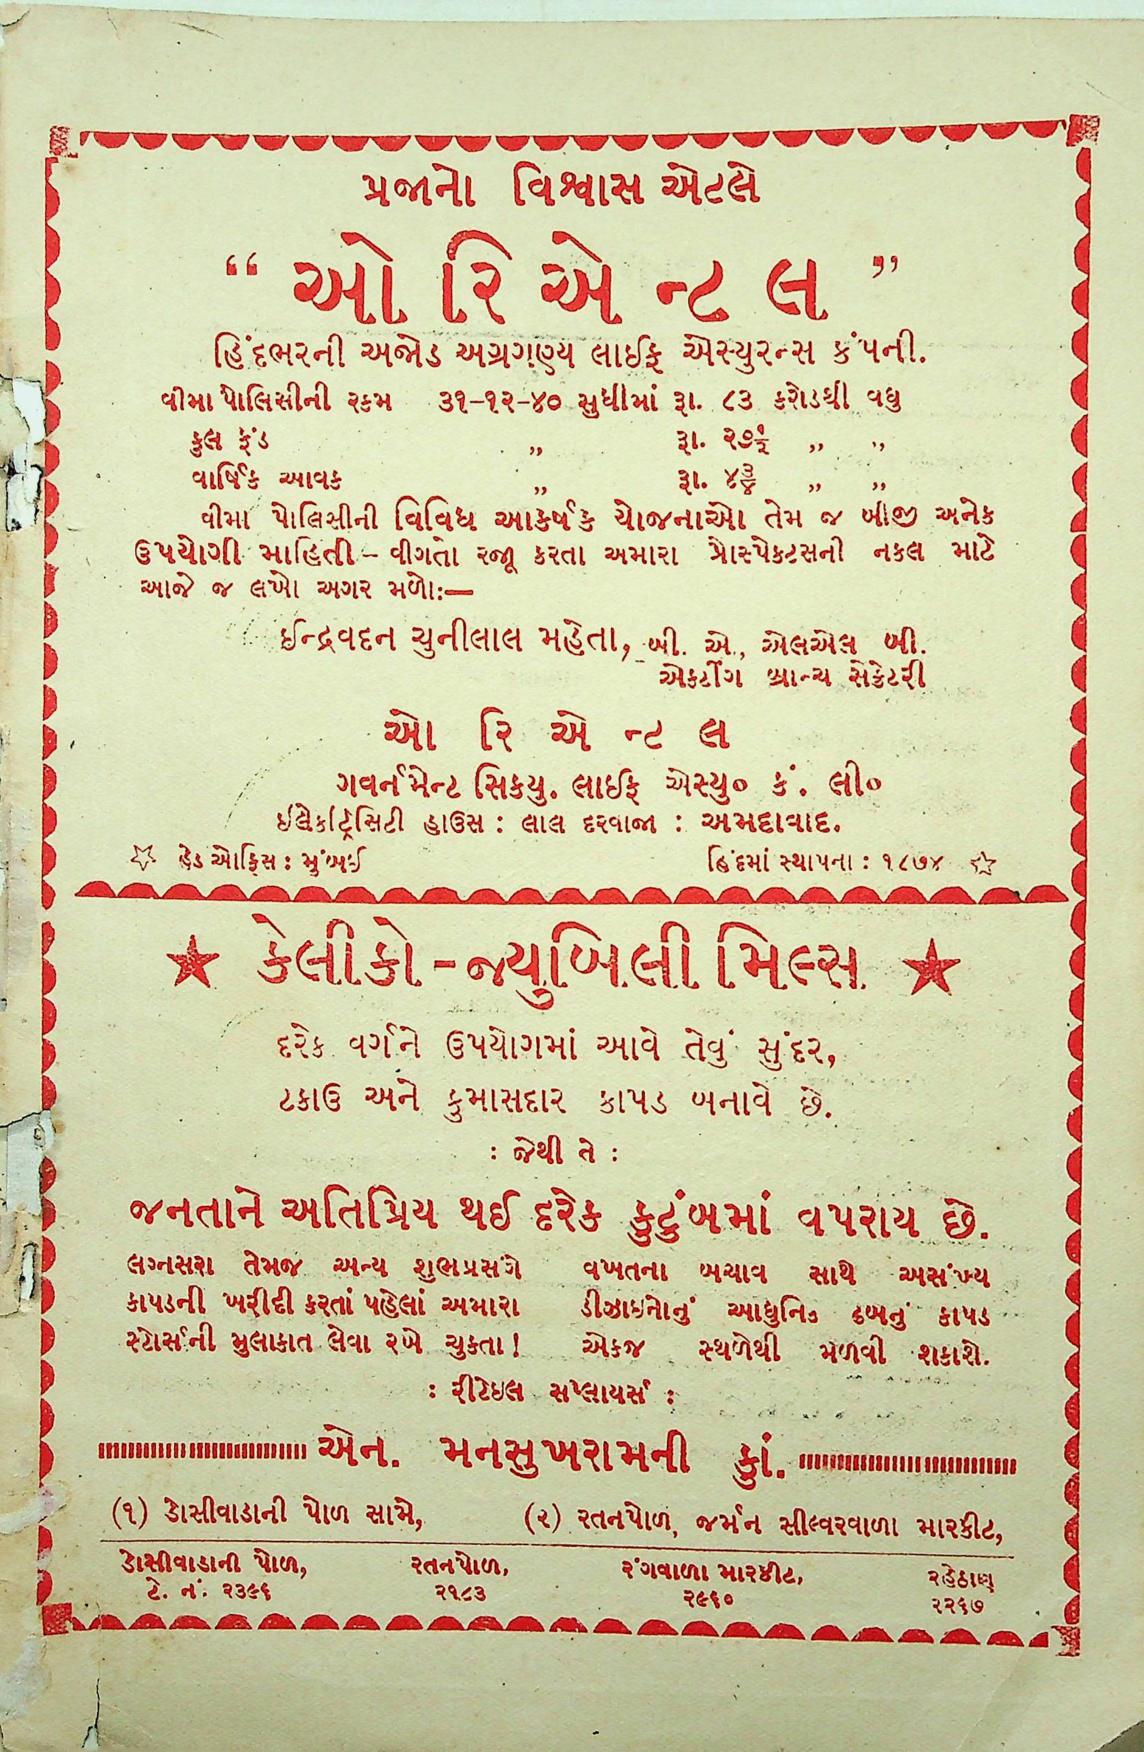 પ્રજાનો વિશ્વાસ એટલે
“ ઓ રિ એ ન્ટ લ ”
હિંદભરની અજોડ અગ્રગણ્ય લાઈફ એસ્યુરન્સ કંપની.
વીમા પોલિસીની રકમ ૩૧-૧૨-૪૦ સુધીમાં રૂા. ૮૩ કરોડથી વધુ
કુલ ફંડ ,, રૂા. ૨૭½ ,, ,,
વાર્ષિક આવક ,, રૂા. ૪¾ ,, ,,
વીમા પોલિસીની વિવિધ આકર્ષક યોજનાઓ તેમ જ બીજી અનેક
ઉપયોગી માહિતી – વીગતો રજૂ કરતા અમારા પ્રોસ્પેકટસની નકલ માટે
આજે જ લખો અગર મળો:—
ઈન્દ્રવદન ચુનીલાલ મહેતા, બી. એ., એલએલ બી.
એકટીંગ બ્રાન્ચ સેક્રેટરી
ઓ રિ એ ન્ટ લ
ગવર્નમેન્ટ સિકયુ. લાઈફ એસ્યુ૦ કં. લી૦
ઈલેકટ્રિસિટી હાઉસ : લાલ દરવાજા : અમદાવાદ.
હેડ ઓફિસ : મુંબઈ હિંદમાં સ્થાપના : ૧૮૭૪
કેલીકો - જ્યુબિલી મિલ્સ
દરેક વર્ગને ઉપયોગમાં આવે તેવું સુંદર,
ટકાઉ અને કુમાસદાર કાપડ બનાવે છે.
: જેથી તે :
જનતાને અતિપ્રિય થઈ દરેક કુટુંબમાં વપરાય છે.
લગ્નસરા તેમજ અન્ય શુભપ્રસંગે
કાપડની ખરીદી કરતાં પહેલાં અમારા
સ્ટોર્સની મુલાકાત લેવા રખે ચુકતા !
વખતના બચાવ સાથે અસંખ્ય
ડીઝાઇનોનું આધુનિક ઢબનું કાપડ
એકજ સ્થળેથી મેળવી શકાશે.
: રીટેઇલ સપ્લાયર્સ :
એન. મનસુખરામની કું.
(૧) ડોસીવાડાની પોળ સામે, (૨) રતનપોળ, જર્મન સીલ્વરવાળા મારકીટ,
ડોસીવાડાની પોળ, રતનપોળ, રંગવાળા મારકીટ, રહેઠાણ
ટે. નં. ૨૩૯૬ ૨૧૮૩ ૨૯૬૦ ૨૨૬૭